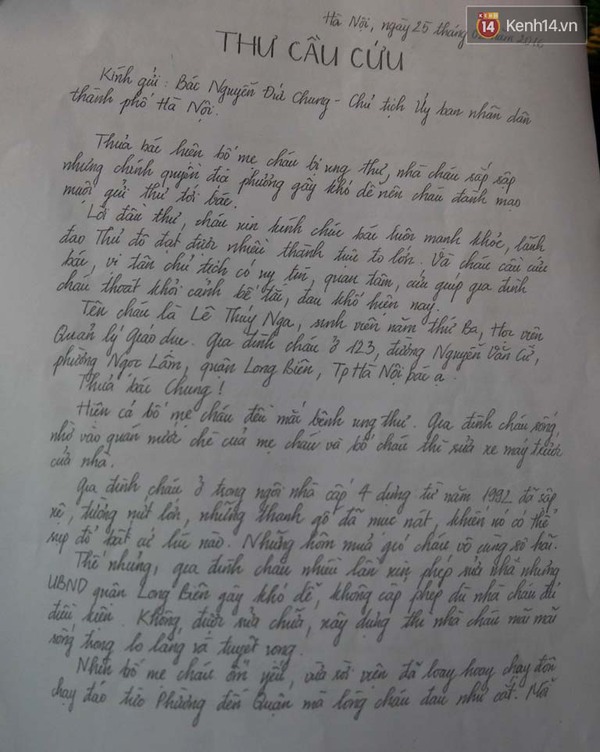 Kenh14.vn
Hà Nội, ngày 25 tháng năm 2016
THƯ CẦU CỨU
Kính gửi: Bác Nguyễn Đức Chung - Chủ tịch Ủy ban nhân dân
thành phố Hà Nội.
Thưa bác hiện bố mẹ cháu bị ung thư, nhà cháu sắp sập
nhưng chính quyền địa phương gây khó dễ nên cháu đánh mạo
muội gửi thư tới bác.
Lời đầu thư, cháu xin kính chúc bác luôn mạnh khỏe, lãnh
đạo Thủ đô đạt được nhiều thành tựu to lớn. Và cháu cầu cứu
bác, vị tân chủ tịch có uy tín, quan tâm, cứu giúp gia đình
cháu thoát khỏi cảnh bế tắc, đau khổ hiện nay.
Tên cháu là Lê Thúy Nga, sinh viên năm thứ Ba, Học viện
Quản lý Giáo dục. Gia đình cháu ở 123, đường Nguyễn Văn Cừ,
phường Ngọc Lâm, quận Long Biên, Tp Hà Nội bác ạ.
Thưa bác Chung!
Hiện cả bố mẹ cháu đều mắc bệnh ung thư. Gia đình cháu sống
nhờ vào quán nước chè của mẹ cháu và bố cháu thì sửa xe máy trước
cửa nhà.
Gia đình cháu ở trong ngôi nhà cấp 4 dựng từ năm 1992 đã sập
xệ, tường nứt lớn, những thanh gỗ đã mục nát, khiến nó có thể
sụp đổ bất cứ lúc nào. Những hôm mưa gió cháu vô cùng sợ hãi.
Thế nhưng, gia đình cháu nhiều lần xin phép sửa nhà nhưng
UBND quận Long Biên gây khó dễ, không cấp phép dù nhà cháu đủ
điều kiện. Không được sửa chữa, xây dựng thì nhà cháu mãi mãi
sống trong lo lắng và tuyệt vọng.
Nhìn bố mẹ cháu ốm yếu, vừa rời viện đã loay hoay chạy đôn
chạy đáo từ Phường đến Quận mà lòng cháu đau như cắt. Mỗi